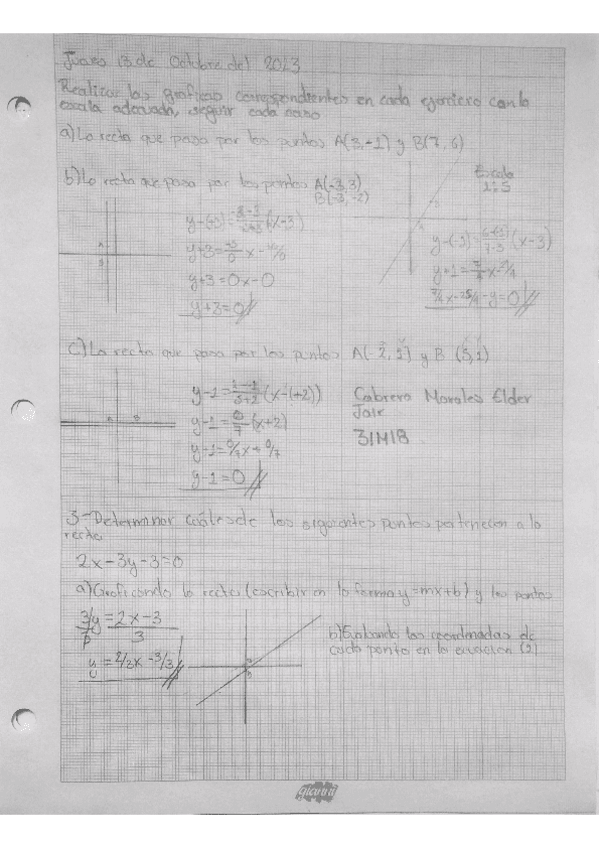 Jueves 13 de Octubre del 2023
Realizar las graficas correspondientes en cada ejercicio con la
escala adecuada, seguir cada caso
a) La recta que pasa por los puntos A(3,-1) y B(7,6)
b) La recta que pasa por los puntos A(-3,3)
B(-3,-2)
Escala
1:5
y+3=0x-0
y+3=0//
(x-3)
-y=0//
c) La recta que pasa por los puntos A(-2,1) y B (5,1)
y-1=(x-(+2))
y-1=0/7(x+2)
y-1=0/7x+0/7
y-1=0//
Cabrera Morales Elder
Jair
31M1B
3-Determinar cuáles de los siguientes puntos pertenecen a la
recta
2x-3y-3=0
a) Graficando la recta (escribir en la forma y=mx+b) y los puntos
3/3 y = 2x-3/3
y = 2/3x - 3/3//
b) Evaluando las coordenadas de
cada punto en la ecuación (2)